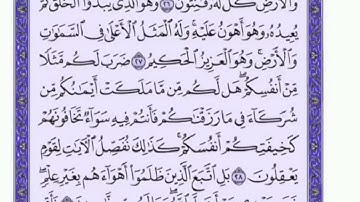 وَٱلْأَرْضِ كُلٌّ لَّهُۥ قَٰنِتُونَ ٢٦ وَهُوَ ٱلَّذِى يَبْدَؤُا۟ ٱلْخَلْقَ ثُمَّ
يُعِيدُهُۥ وَهُوَ أَهْوَنُ عَلَيْهِ وَلَهُ ٱلْمَثَلُ ٱلْأَعْلَىٰ فِى ٱلسَّمَٰوَٰتِ
وَٱلْأَرْضِ وَهُوَ ٱلْعَزِيزُ ٱلْحَكِيمُ ٢٧ ضَرَبَ لَكُم مَّثَلًا
مِّنْ أَنفُسِكُمْ هَل لَّكُم مِّن مَّا مَلَكَتْ أَيْمَٰنُكُم مِّن
شُرَكَآءَ فِى مَا رَزَقْنَٰكُمْ فَأَنتُمْ فِيهِ سَوَآءٌ تَخَافُونَهُمْ
كَخِيفَتِكُمْ أَنفُسَكُمْ كَذَٰلِكَ نُفَصِّلُ ٱلْءَايَٰتِ لِقَوْمٍ
يَعْقِلُونَ ٢٨ بَلِ ٱتَّبَعَ ٱلَّذِينَ ظَلَمُوٓا۟ أَهْوَآءَهُم بِغَيْرِ عِلْمٍ